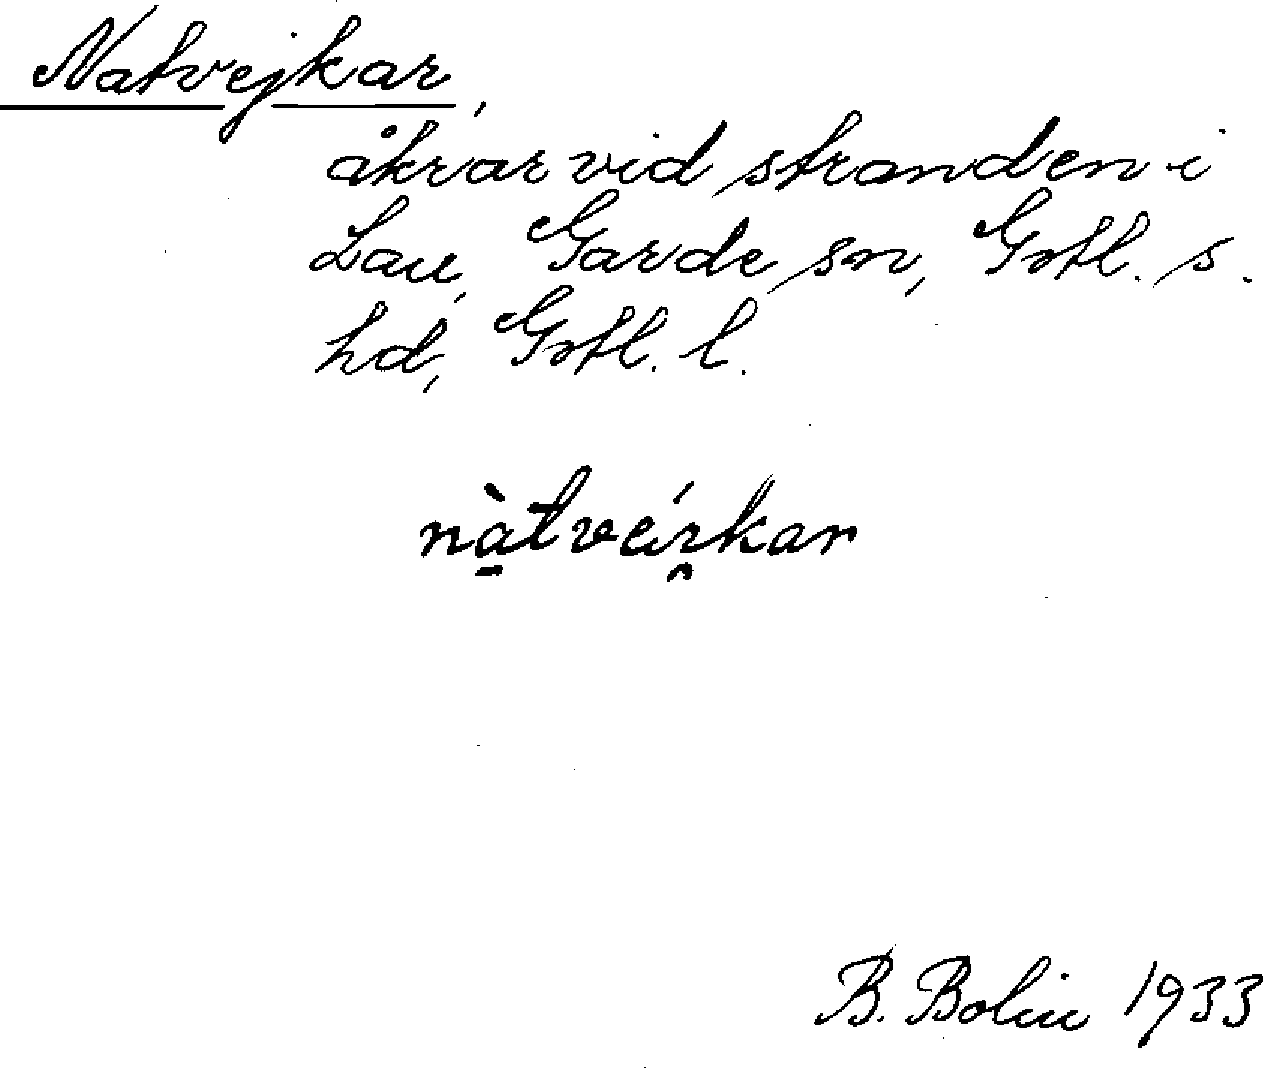 Natvejkar,
åkrar vid stranden i
Lau, Garde sn, Gotl. s.
hd, Gotl. l.
B. Bolin 1933